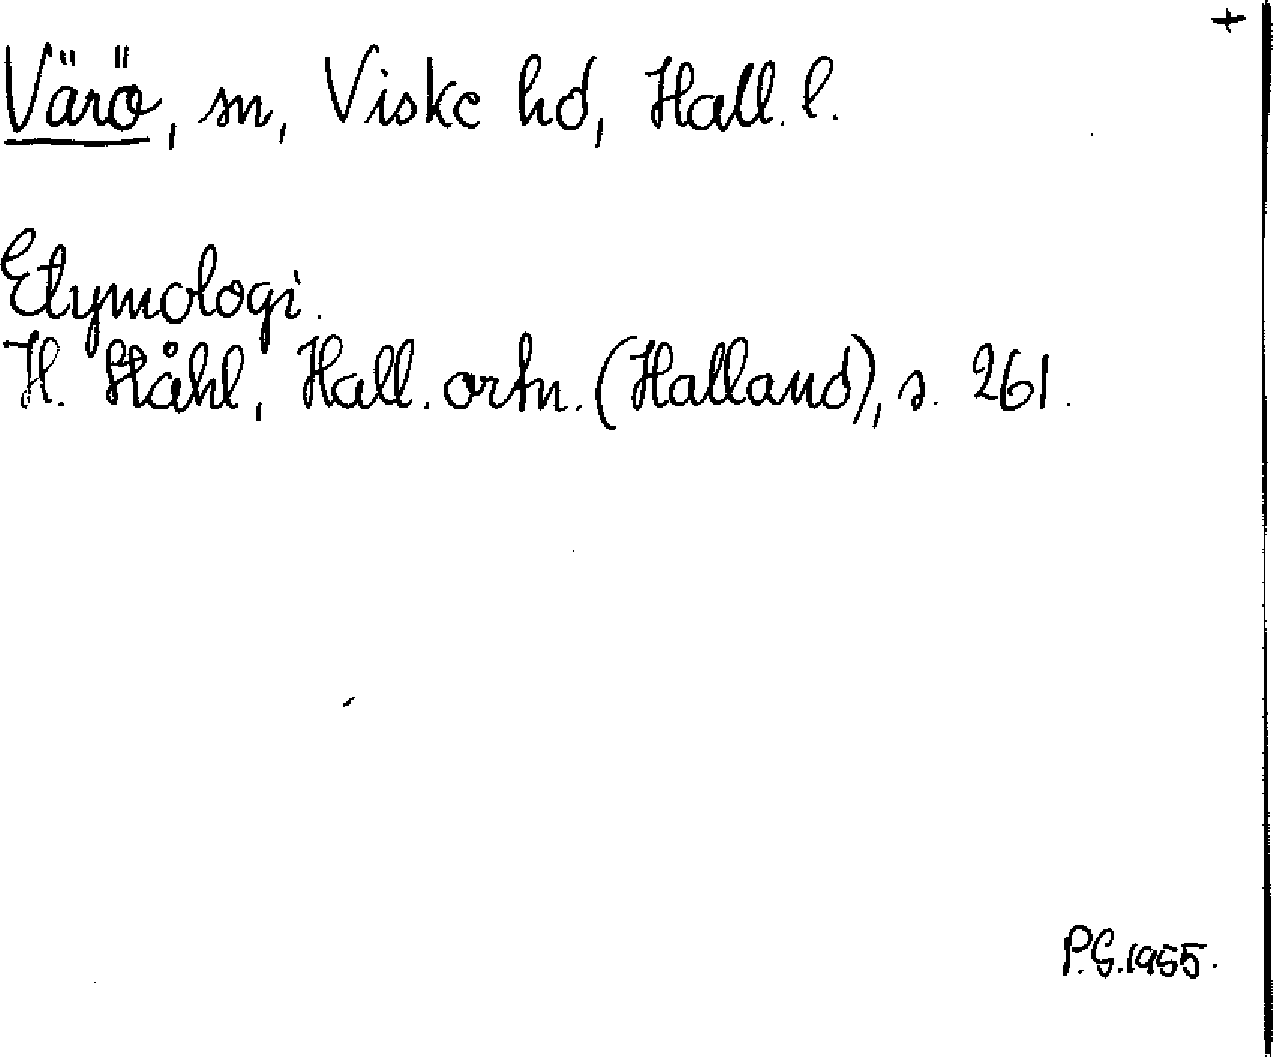 +
Värö, sn, Viske hd, Hall. l.
Etymologi.
H. Ståhl, Hall. ortn. (Halland), s. 261.
P.G.1955.